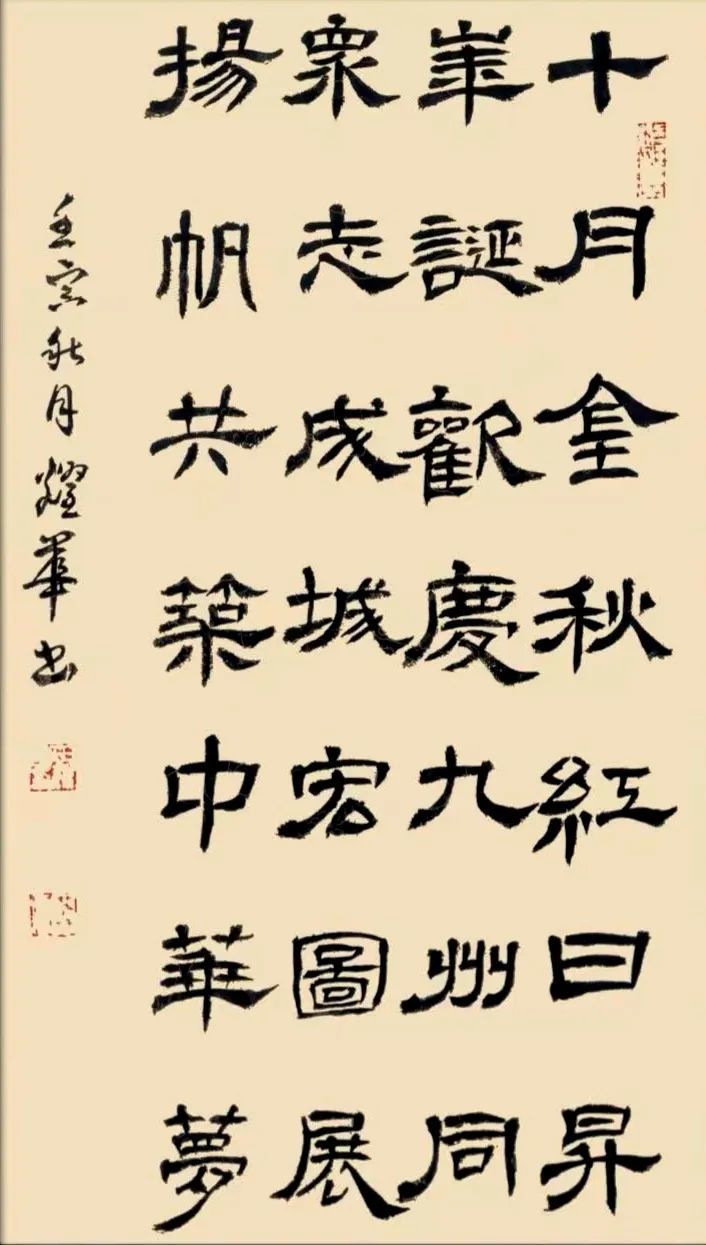 十月金秋紅日昇
崋誕歡慶九州同
眾志成城宏圖展
揚帆共築中華夢
壬寅秋月耀華书